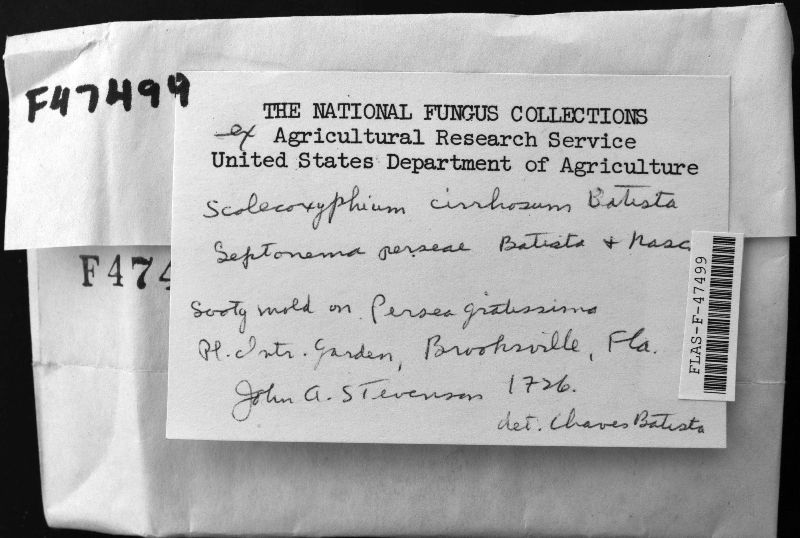 F47499
THE NATIONAL FUNGUS COLLECTIONS
ex Agricultural Research Service
United States Department of Agriculture
Scolecoxyphium cirrhosum Batista
Septonema perseae Batista + Nasc
F474
FLAS-F-47499
Sooty mold on Persea gratissima
Pl. Intr. Garden, Brooksville, Fla.
John A. Stevenson 1726.
det. Chaves Batista